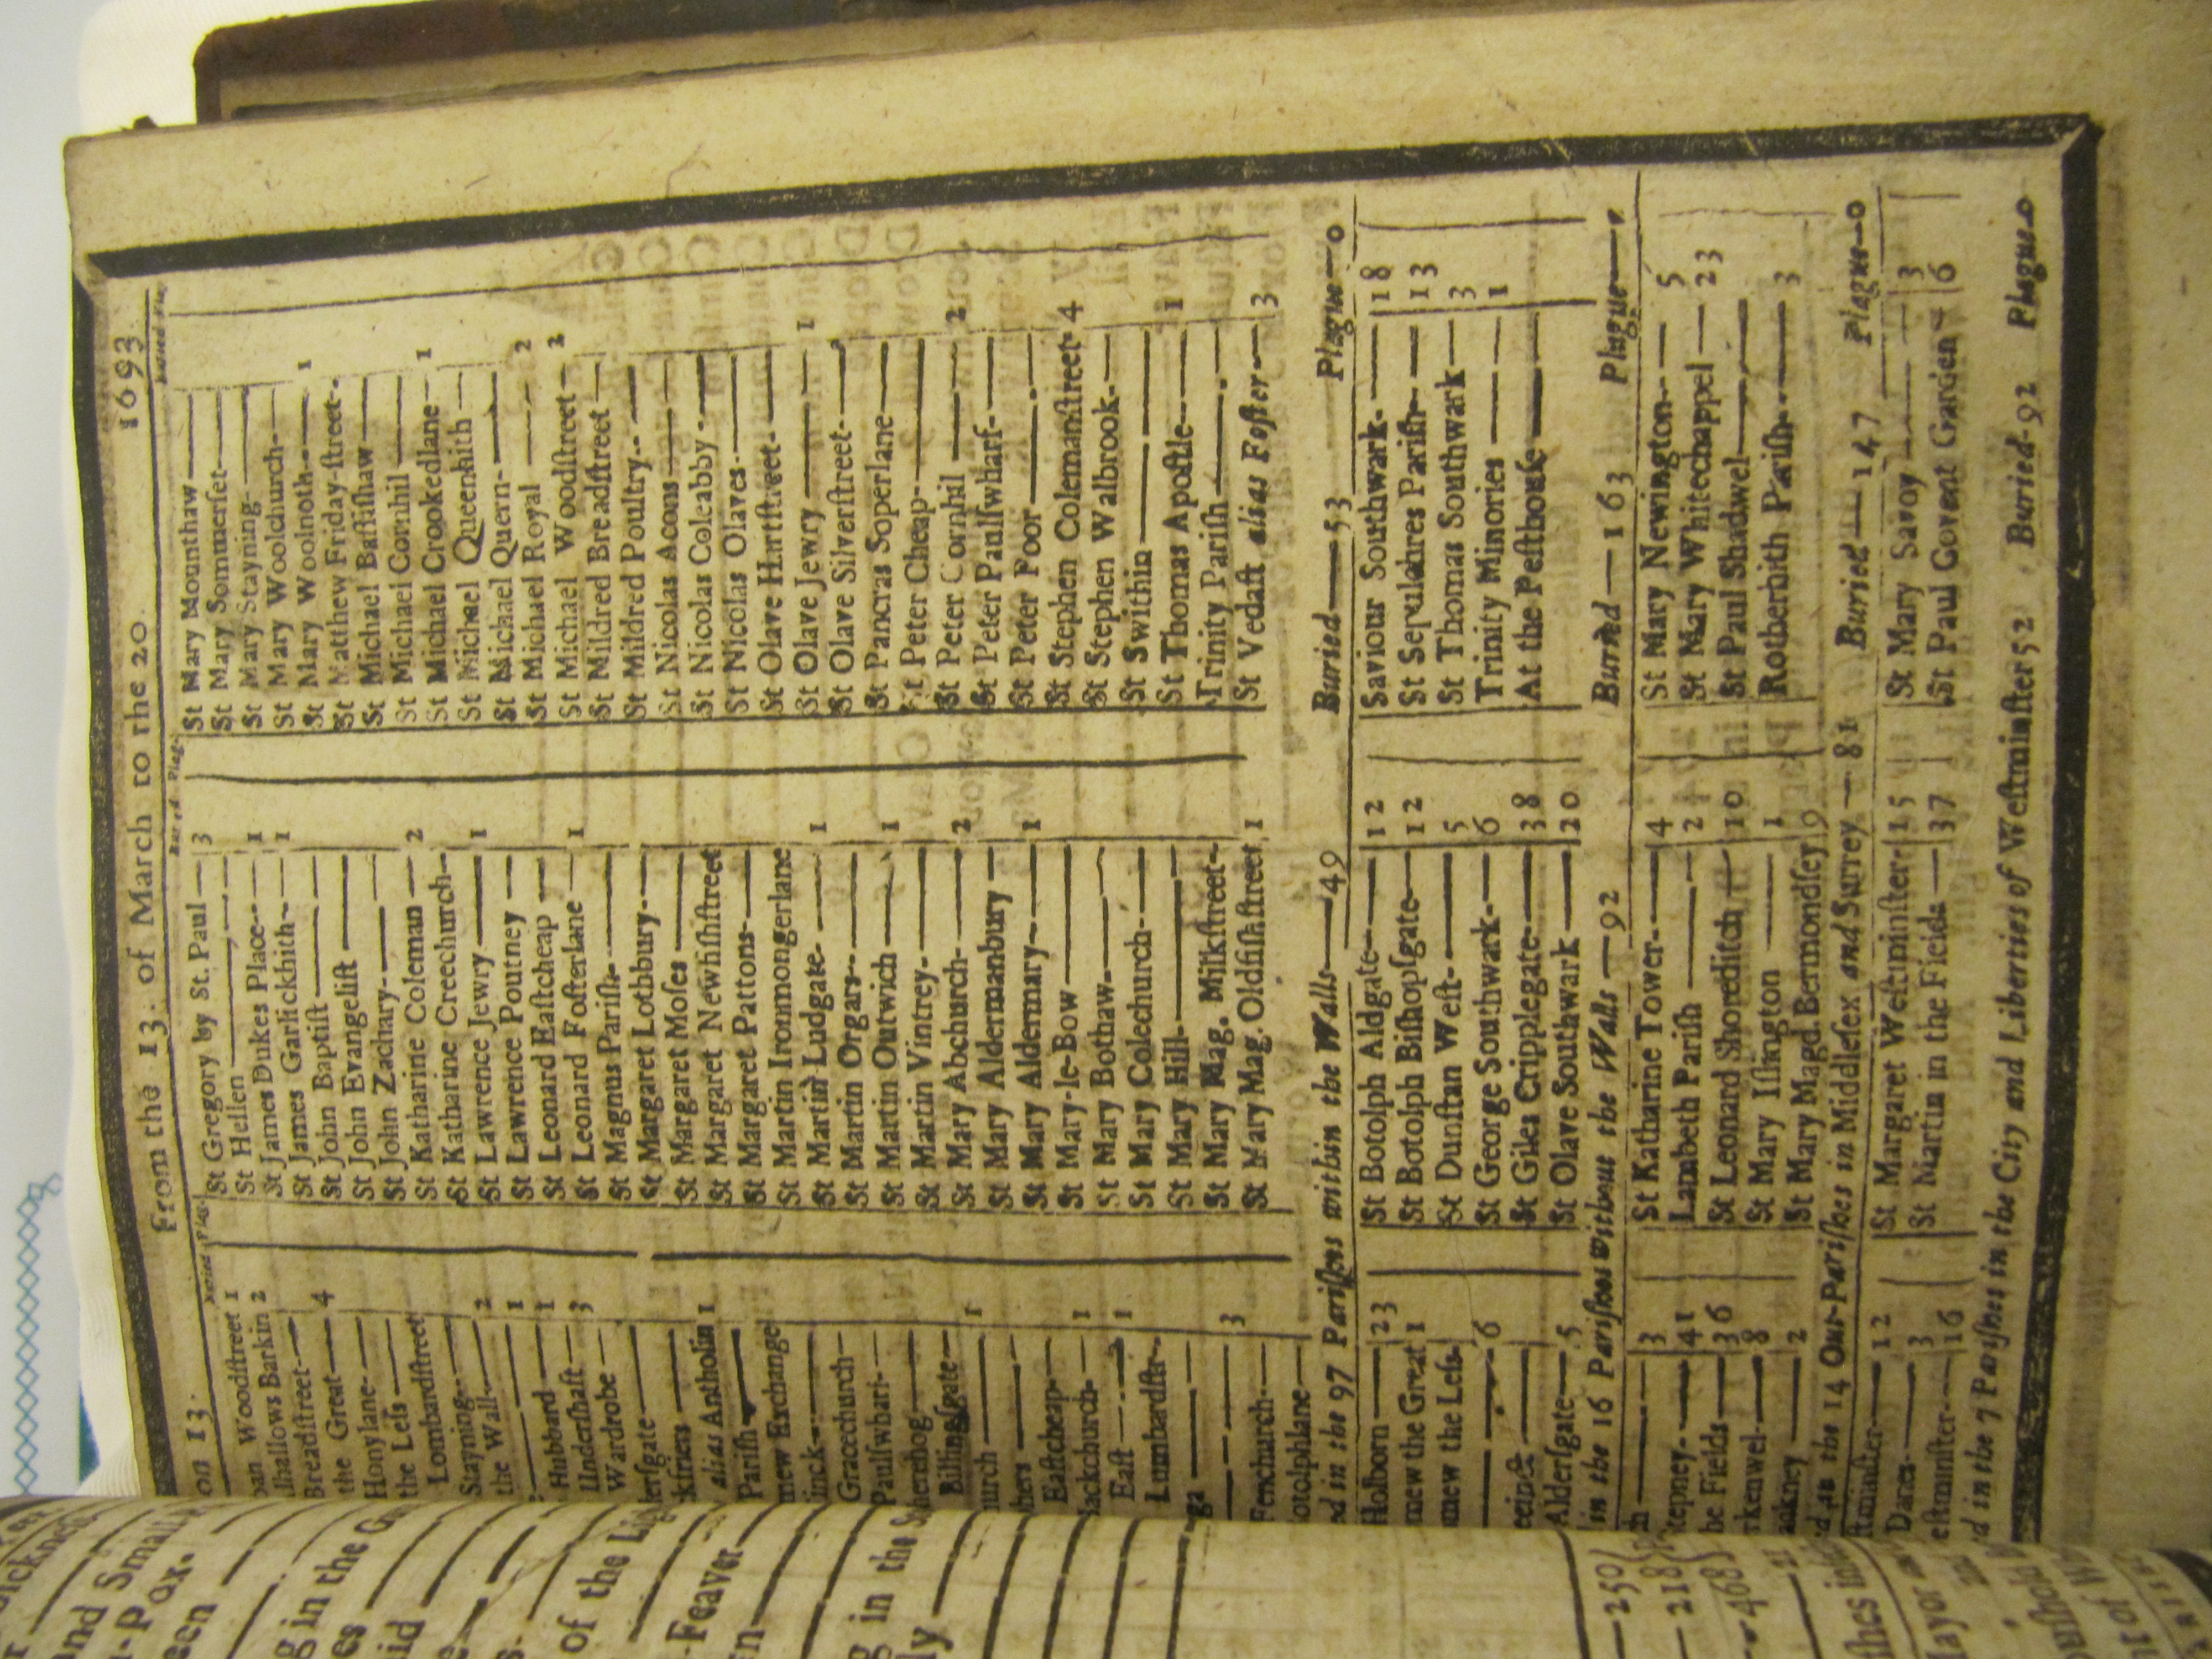 on 13. From the 13. of March to the 20. 1693
Buried Plag. Buried Plag. Buried Plag.
Woodstreet 1
lhallows Barkin 2
Breadstreet
the Great 4
Honylane
the Less
Lombardstreet
Stayning
the Wall 2
1
Hubbard 1
Undershaft 3
Wardrobe
ersgate
alias Antholin 1
Parish
new Exchange
Gracechurch
Paulswharf
Billingsgate
urch 1
Eastcheap
ackchurch 1
East 1
Lumbardstr
3
Fenchurch
otolphlane
St Gregory by St. Paul 3
St Hellen
St James Dukes Place 1
St James Garlickhith 1
St John Baptist
St John Evangelist
St John Zachary
St Katharine Coleman 2
St Katharine Creechurch
St Lawrence Jewry 1
St Lawrence Pountney
St Leonard Eastcheap
St Leonard Fosterlane 1
St Magnus Parish
St Margaret Lothbury
St Margaret Moses
St Margaret Newfishstreet
St Margaret Pattons
St Martin Ironmongerlane
St Martin Ludgate 1
St Martin Orgars
St Martin Outwich 1
St Martin Vintrey
St Mary Abchurch 2
St Mary Aldermanbury
St Mary Aldermary 1
St Mary-le-Bow
St Mary Bothaw
St Mary Colechurch
St Mary Hill
St Mary Mag. Milkstreet
St Mary Mag. Oldfishstreet 1
St Mary Mounthaw
St Mary Sommerset
St Mary Stayning
St Mary Woolchurch
St Mary Woolnoth 1
St Matthew Friday-street
St Michael Bassishaw
St Michael Cornhil
St Michael Crookedlane 1
St Michael Queenhith
St Michael Quern
St Michael Royal 2
St Michael Woodstreet 2
St Mildred Breadstreet
St Mildred Poultry
St Nicolas Acons
St Nicolas Coleabby
St Nicolas Olaves
St Olave Hartstreet
St Olave Jewry 1
St Olave Silverstreet
St Pancras Soperlane
St Peter Cheap
St Peter Cornhil 2
St Peter Paulswharf
St Peter Poor
St Stephen Colemanstreet 4
St Stephen Walbrook
St Swithin
St Thomas Apostle 1
Trinity Parish
St Vedast alias Foster 3
d in the 97 Parishes within the Walls—49 Buried—53 Plague—0
Holborn 23
mew the Great 1
mew the Less
6
Aldersgate 5
St Botolph Aldgate 12
St Botolph Bishopsgate 12
St Dunstan West 5
St George Southwark 6
St Giles Cripplegate 38
St Olave Southwark 20
Saviour Southwark 18
St Sepulchres Parish 13
St Thomas Southwark 3
Trinity Minories 1
At the Pesthouse
in the 16 Parishes without the Walls—92 Buried—163 Plague
3
tepney 41
he Fields 36
rkenwel 8
ackney 2
St Katharine Tower 4
Lambeth Parish 2
St Leonard Shoreditch 10
St Mary Islington 1
St Mary Magd. Bermondsey 9
St Mary Newington 5
St Mary Whitechappel 23
St Paul Shadwel
Rotherhith Parish 3
d in the 14 Out-Parishes in Middlesex and Surrey—81 Buried—147 Plague—0
12
Danes 3
estminster 16
St Margaret Westminster 15
St Martin in the Fields 37
St Mary Savoy 3
St Paul Covent Garden 6
d in the 7 Parishes in the City and Liberties of Westminster 52 Buried-92 Plague-0
and Small
-Pox.
g in the G
of the Lig
-Feaver
g in the S
250
218
468